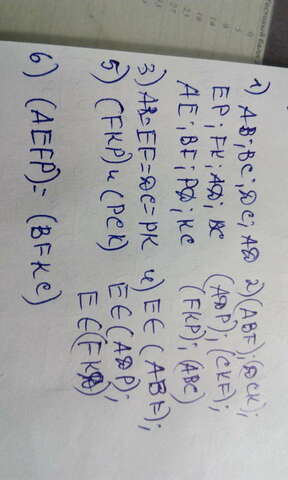 1) AB; BC; DC; AD
EP; FK; AD; BC
AE; BF; PD; KC
2) (ABF); DCK);
(ADP); (CKF);
(FKP); (ABC)
3) AB=EF=DC=PK
4) E∈(ABF);
E∈(ADP);
E∈(FKD)
5) (FKP) и (PCK)
6) (AEFP)= (BFKC)